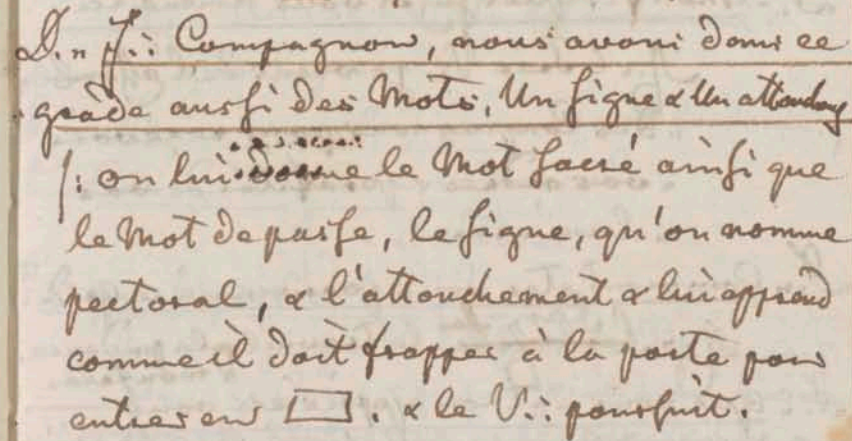 D.„ F∴ Compagnon, nous avons dans ce
grade aussi des Mots, Un signe & Un attouchmt
/: on lui donne le Mot sacré ainsi que
le Mot de passe, le signe, qu'on nomme
pectoral, & l'attouchement & lui apprend
comme il doit frapper à la porte pour
entrer en ▭. & le V∴ poursuit.